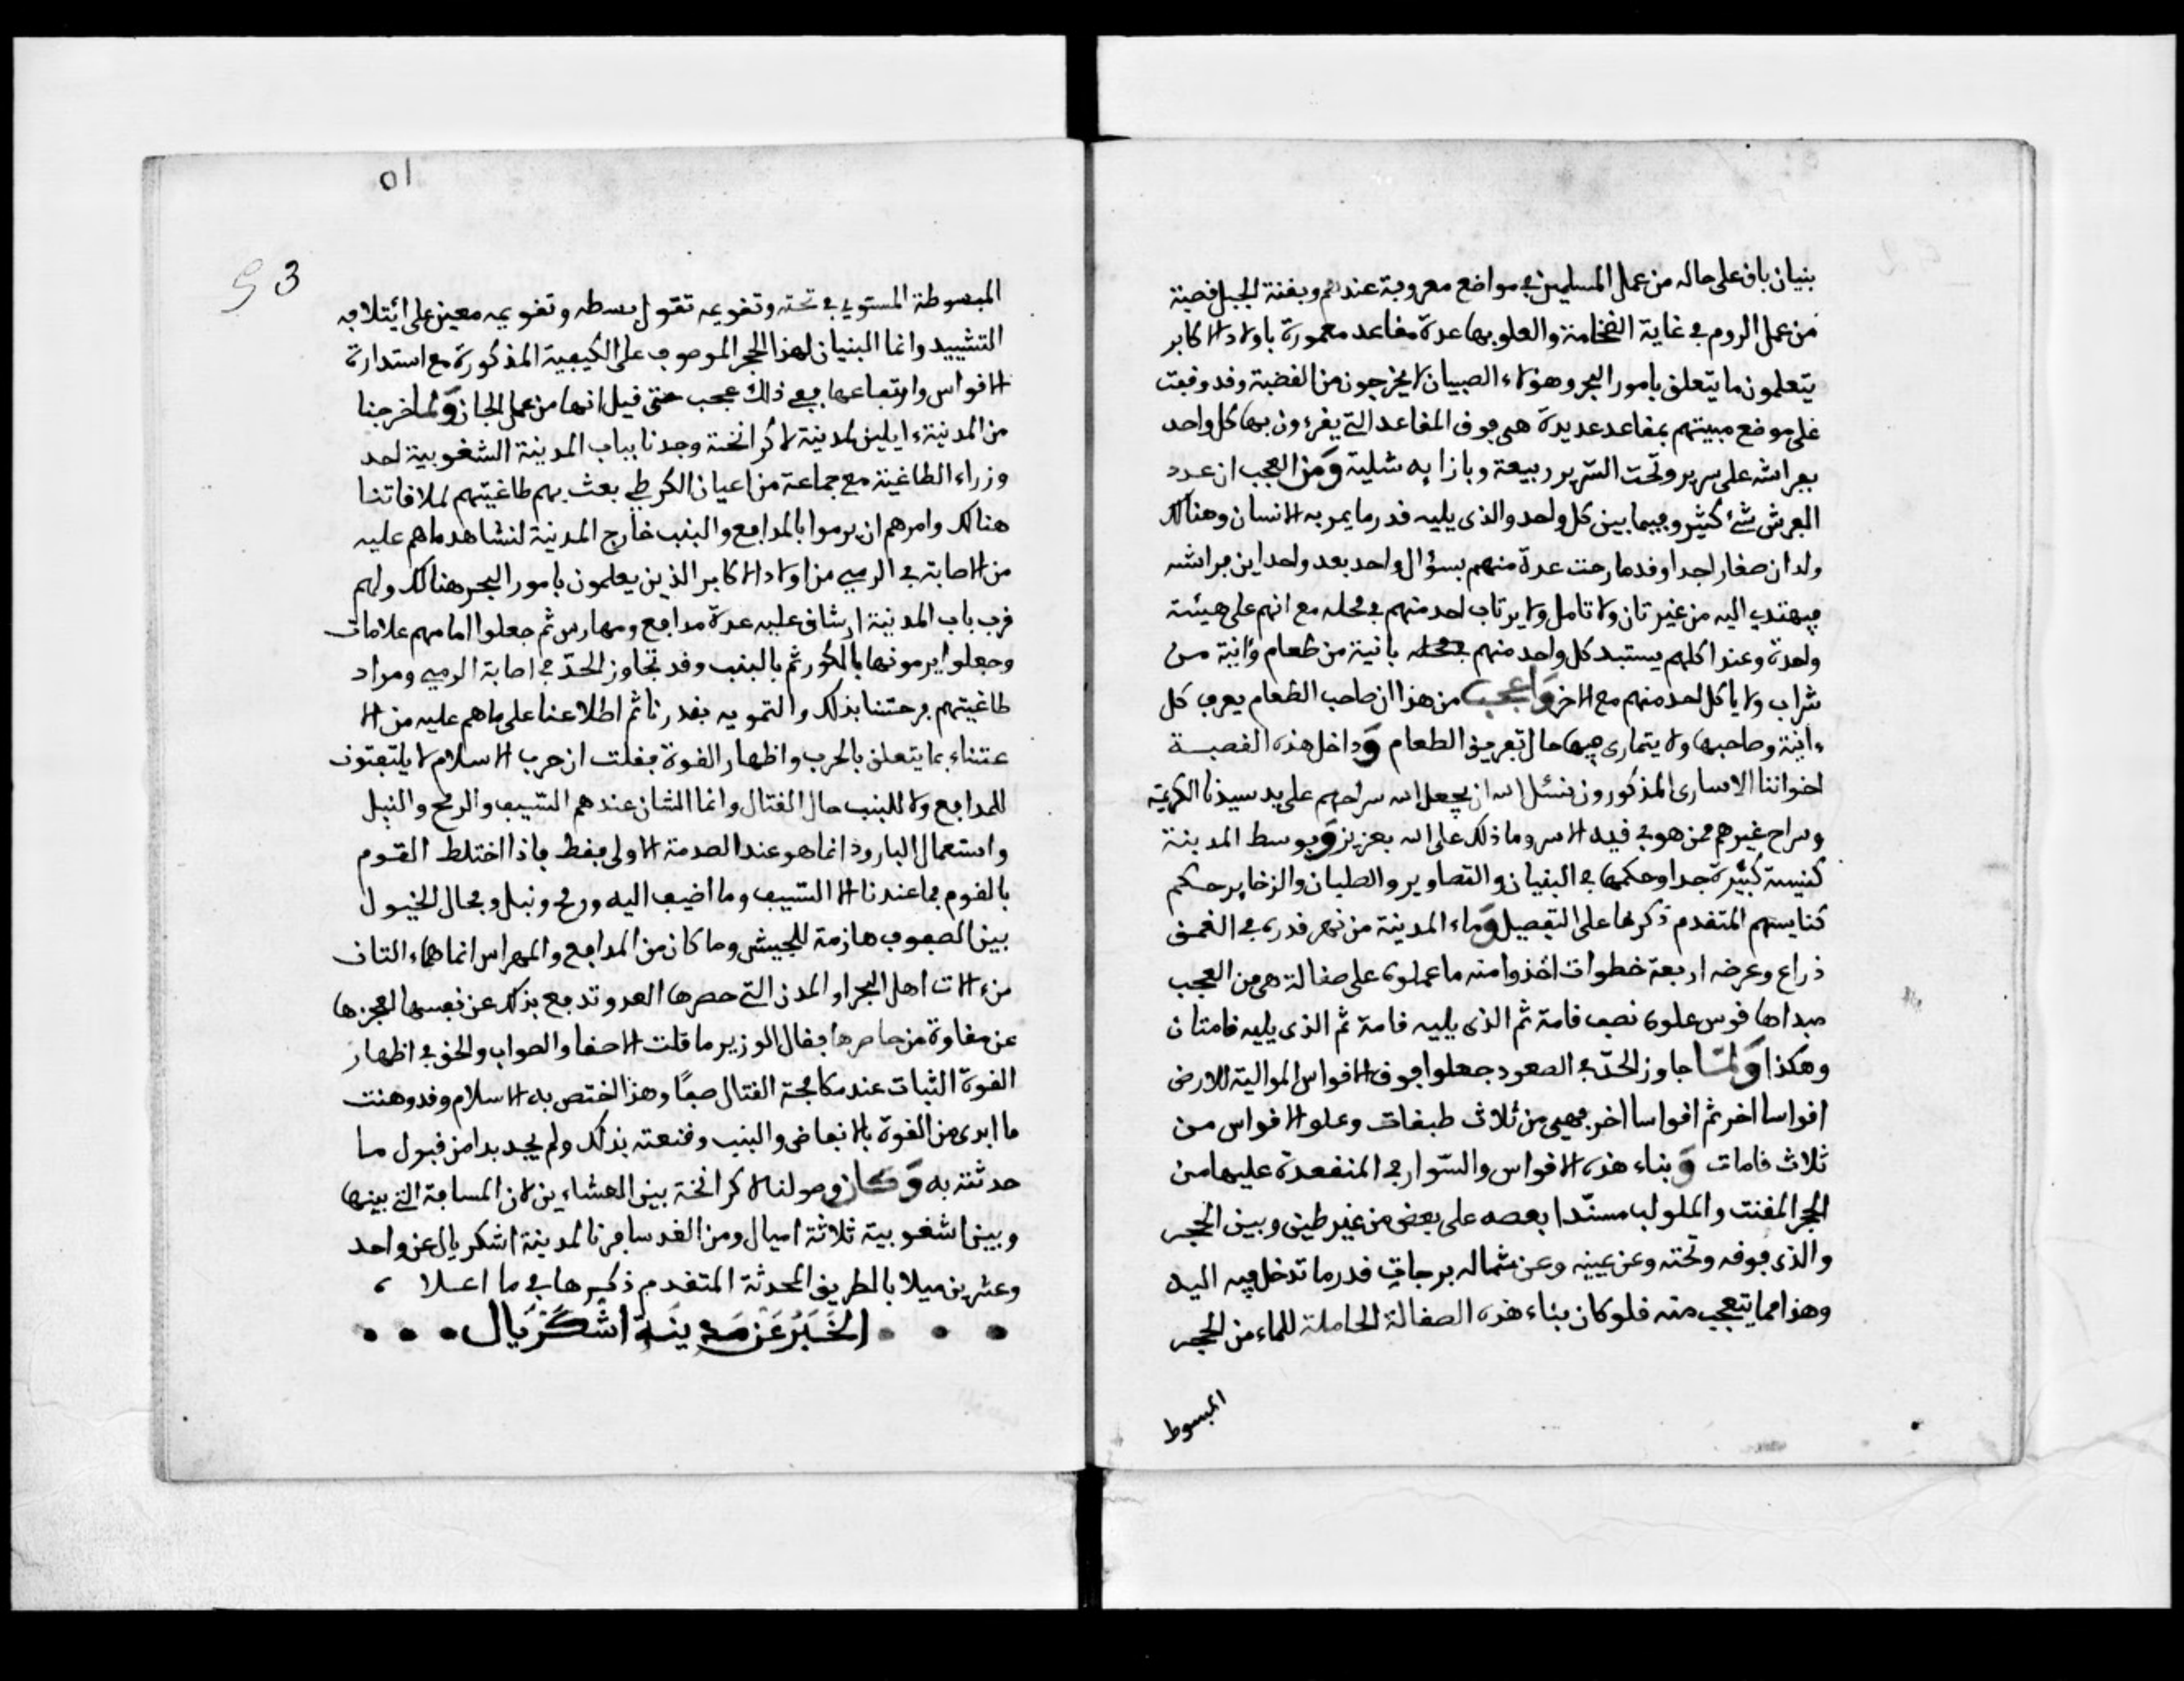 بنيان باق على حاله من عمل المسلمين في مواضع معروفة عندهم وبقنة الجبل قصبة
من عمل الروم في غاية الضخامة والعلو بها عدة مقاعد معمورة باولاد الاكابر
يتعلمون ما يتعلق بامور البحر وهؤلاء الصبيان لا يخرجون من القصبة وقد وقفت
على موضع مبيتهم بمقاعد عديدة هي فوق المقاعد التي يقرءون بها كل واحد
بفراشه على سرير وتحت السرير ربيعة وبازايه شلية ومن العجب ان عدد
الفرش شئ كثير وفيما بين كل واحد والذي يليه قدر ما يمر به الانسان وهنالك
ولدان صغار جدا وقد مازحت عدة منهم بسؤال واحد بعد واحد اين فراشه
فيهتدي اليه من غير تان ولا تامل ولا يرتاب احد منهم في محله مع انهم على هيئة
واحدة وعند اكلهم يستبد كل واحد منهم بانية من طعام وءانية من
شراب ولا ياكل احد منهم مع الاخر واعجب من هذا ان صاحب الطعام يعرف كل
ءانية وصاحبها ولا يتمارى فيها حال تفريق الطعام وداخل هذه القصبة
اخواننا الاسارى المذكورون نسئل الله ان يجعل الله سراحهم على يد سيدنا الكريمة
وسراح غيرهم ممن هو في قيد الاسر وما ذلك على الله بعزيز وبوسط المدينة
كنيسة كبيرة جدا وحكمها في البنيان والتصاوير والصلبان والزخاير حكم
كنايسهم المتقدم ذكرها على التفصيل وماء المدينة من نهر قدره في الغمق
ذراع وعرضه اربعة خطوات اخذوا منه ما عملوه على صقالة هي من العجب
مبداها قوس علوه نصف قامة ثم الذي يليه قامة ثم الذي يليه قامتان
وهكذا ولما جاوز الحد في الصعود جعلوا فوق الاقواس الموالية للارض
اقواسا اخر ثم اقواسا اخر فهي من ثلاث طبقات وعلو الاقواس من
ثلاث قامات وبناء هذه الاقواس والسواري المنعقدة عليها من
الحجر المفنت والملولب مسندا بعضه على بعض من غير طين وبين الحجر
والذي فوقه وتحته وعن يمينه وعن شماله فرجات قدر ما تدخل فيه اليد
وهذا مما يتعجب منه فلو كان بناء هذه الصقالة الحاملة للماء من الحجر
المبسوط
٥١
53
المبسوطة المستوي في تحته وتقويمه تقول بسطه وتقويمه معين على ائتلافه
التشييد وانما البنيان لهذا الحجر الموصوف على الكيفية المذكورة مع استدارة
الاقواس وارتفاعها ففي ذلك عجب حتى قيل انها من عمل الجان ولما خرجنا
من المدينة ذاهبين لمدينة لاكرانخة وجدنا بباب المدينة الشغوبية احد
وزراء الطاغية مع جماعة من اعيان الكرطي بعث بهم طاغيتهم لملاقاتنا
هنالك وامرهم ان يرموا بالمدافع والبنب خارج المدينة لنشاهد ما هم عليه
من الاصابة في الرمي من اولاد الاكابر الذين يعلمون بامور البحر هنالك ولهم
قرب باب المدينة عدة مدافع ومهارس ثم جعلوا امامهم علامات
وجعلوا يرمونها بالكور ثم بالبنب وقد تجاوز الحد في اصابة الرمي ومراد
طاغيتهم فرحتنا بذلك والتمويه بقدرنا ثم اطلاعنا على ما هم عليه من الا
عتناء بما يتعلق بالحرب واظهار القوة فقلت ان حرب الاسلام لا يلتفتون
للمدافع ولا للبنب حال القتال وانما الشان عندهم السيف والرمح والنبل
واستعمال البارود انما هو عند الصدمة الاولى فقط فاذا اختلط القوم
بالقوم فما عندنا الا السيف وما اضيف اليه ورمح ونبل ومجال الخيول
بين الصفوف هازمة للجيش وما كان من المدافع والمهراس انما هماء التان
من ءالات اهل البحر او المدن التي حصرها العدو تدفع بذلك عن نفسها لعجزها
عن مقاوة من حاصرها فقال الوزير ما قلت الا حقا والصواب والحق في اظهار
القوة الثبات عند مكافحة القتال صفا وهذا اختص به الاسلام وقد وهنت
ما ابدى من القوة بالانفاض والبنب وقنعته بذلك ولم يجد بدا من قبول ما
حدثته به وكان وصولنا لاكرانخة بين العشاءين لان المسافة التي بينها
وبين اشغوبية ثلاثة اميال ومن الغد سافرنا لمدينة اشكريال عن واحد
وعشرين ميلا بالطريق المحدثة المتقدم ذكرها في ما اعلا ،
الخبر عن مدينة اشكريال